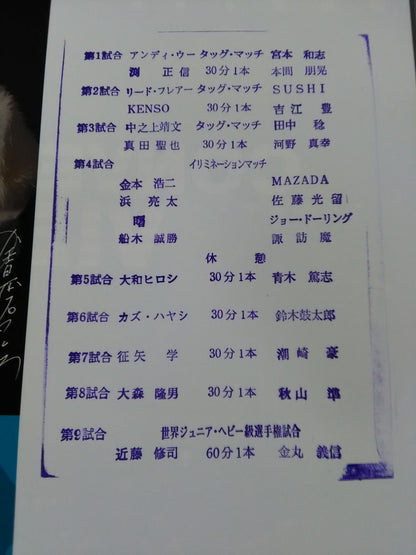 第1試合 アンディ・ウー タッグ・マッチ 宮本 和志
渕 正信 30分1本 本間 朋晃
第2試合 リード・フレアー タッグ・マッチ SUSHI
KENSO 30分1本 吉江 豊
第3試合 中之上靖文 タッグ・マッチ 田中 稔
真田聖也 30分1本 河野 真幸
第4試合 イリミネーションマッチ
金本 浩二 MAZADA
浜 亮太 佐藤光留
曙 ジョー・ドーリング
船木誠勝 諏訪魔
休 憩
第5試合 大和ヒロシ 30分1本 青木 篤志
第6試合 カズ・ハヤシ 30分1本 鈴木鼓太郎
第7試合 征矢 学 30分1本 潮崎 豪
第8試合 大森 隆男 30分1本 秋山 準
第9試合 世界ジュニア・ヘビー級選手権試合
近藤 修司 60分1本 金丸 義信